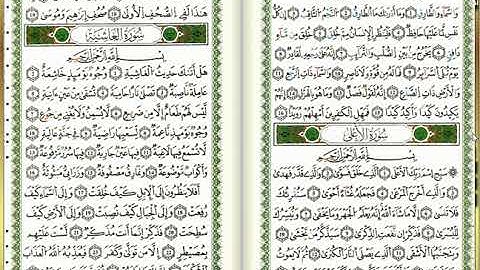 وَالسَّمَاءِ وَالطَّارِقِ ١ وَمَا أَدْرَاكَ مَا الطَّارِقُ ٢ النَّجْمُ
الثَّاقِبُ ٣ إِن كُلُّ نَفْسٍ لَّمَّا عَلَيْهَا حَافِظٌ ٤ فَلْيَنظُرِ الْإِنسَانُ مِمَّ خُلِقَ ٥ خُلِقَ مِن مَّاءٍ
دَافِقٍ ٦ يَخْرُجُ مِن بَيْنِ الصُّلْبِ وَالتَّرَائِبِ ٧ إِنَّهُ عَلَىٰ رَجْعِهِ لَقَادِرٌ ٨
يَوْمَ تُبْلَى السَّرَائِرُ ٩ فَمَا لَهُ مِن قُوَّةٍ وَلَا نَاصِرٍ ١٠ وَالسَّمَاءِ ذَاتِ الرَّجْعِ ١١
وَالْأَرْضِ ذَاتِ الصَّدْعِ ١٢ إِنَّهُ لَقَوْلٌ فَصْلٌ ١٣ وَمَا هُوَ بِالْهَزْلِ ١٤ إِنَّهُمْ
يَكِيدُونَ كَيْدًا ١٥ وَأَكِيدُ كَيْدًا ١٦ فَمَهِّلِ الْكَافِرِينَ أَمْهِلْهُمْ رُوَيْدًا ١٧
سُورَةُ الأَعْلَى
بِسْمِ اللَّهِ الرَّحْمَٰنِ الرَّحِيمِ
سَبِّحِ اسْمَ رَبِّكَ الْأَعْلَى ١ الَّذِي خَلَقَ فَسَوَّىٰ ٢ وَالَّذِي قَدَّرَ فَهَدَىٰ
٣ وَالَّذِي أَخْرَجَ الْمَرْعَىٰ ٤ فَجَعَلَهُ غُثَاءً أَحْوَىٰ ٥ سَنُقْرِئُكَ
فَلَا تَنسَىٰ ٦ إِلَّا مَا شَاءَ اللَّهُ إِنَّهُ يَعْلَمُ الْجَهْرَ وَمَا يَخْفَىٰ ٧
وَنُيَسِّرُكَ لِلْيُسْرَىٰ ٨ فَذَكِّرْ إِن نَّفَعَتِ الذِّكْرَىٰ ٩ سَيَذَّكَّرُ مَن يَخْشَىٰ ١٠
وَيَتَجَنَّبُهَا الْأَشْقَى ١١ الَّذِي يَصْلَى النَّارَ الْكُبْرَىٰ ١٢
هَٰذَا لَفِي الصُّحُفِ الْأُولَىٰ ١٨ صُحُفِ إِبْرَاهِيمَ وَمُوسَىٰ ١٩
سُورَةُ الغَاشِيَةِ
بِسْمِ اللَّهِ الرَّحْمَٰنِ الرَّحِيمِ
هَلْ أَتَاكَ حَدِيثُ الْغَاشِيَةِ ١ وُجُوهٌ يَوْمَئِذٍ خَاشِعَةٌ ٢
عَامِلَةٌ نَّاصِبَةٌ ٣ تَصْلَىٰ نَارًا حَامِيَةً ٤ تُسْقَىٰ مِنْ عَيْنٍ آنِيَةٍ ٥
لَّيْسَ لَهُمْ طَعَامٌ إِلَّا مِن ضَرِيعٍ ٦ لَّا يُسْمِنُ وَلَا يُغْنِي مِن جُوعٍ
٧ وُجُوهٌ يَوْمَئِذٍ نَّاعِمَةٌ ٨ لِّسَعْيِهَا رَاضِيَةٌ ٩ فِي جَنَّةٍ عَالِيَةٍ ١٠
لَّا تَسْمَعُ فِيهَا لَاغِيَةً ١١ فِيهَا عَيْنٌ جَارِيَةٌ ١٢ فِيهَا سُرُرٌ مَّرْفُوعَةٌ ١٣
وَأَكْوَابٌ مَّوْضُوعَةٌ ١٤ وَنَمَارِقُ مَصْفُوفَةٌ ١٥ وَزَرَابِيُّ مَبْثُوثَةٌ ١٦
أَفَلَا يَنظُرُونَ إِلَى الْإِبِلِ كَيْفَ خُلِقَتْ ١٧ وَإِلَى السَّمَاءِ كَيْفَ
رُفِعَتْ ١٨ وَإِلَى الْجِبَالِ كَيْفَ نُصِبَتْ ١٩ وَإِلَى الْأَرْضِ كَيْفَ
سُطِحَتْ ٢٠ فَذَكِّرْ إِنَّمَا أَنتَ مُذَكِّرٌ ٢١ لَّسْتَ عَلَيْهِم
بِمُصَيْطِرٍ ٢٢ إِلَّا مَن تَوَلَّىٰ وَكَفَرَ ٢٣ فَيُعَذِّبُهُ اللَّهُ الْعَذَابَ